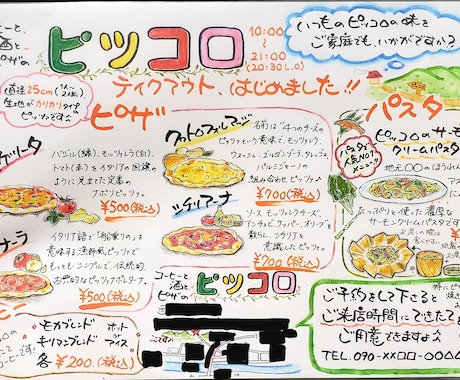 ーヒーと、
酒と
ピザの
ピッコロ
10:00
~
21:00
(20:30 L.O)
いつものピッコロの味を
ご家庭でも、いかがですか？
テイクアウト、はじめました!!
直径25cm
生地がカリカリタイプ
のピッツァです
ピザ
ゲリータ
バジル(緑)、モッツァレラ(白)、
トマト(赤)とイタリアの国旗の
ように見立てた定番の
ナポリピッツァ。
¥500(税込)
クァットロフォルマッジ
名前は"4つのチーズの
ピッツァという意味で、モッツァレラ、
ウォッシュ
パルミジャーノの
組み合わせピッツァ
¥700(税込)
ナーラ
イタリア語で「船乗り」を
意味する漁師風ピッツァで
もっともシンプルで、伝統的、
古典的なピッツァナポレターナ。
¥500(税込)
シチリアーナ
ソース、モッツァレラチーズ、
アンチョビ、ケッパー、オリーブを
散らし、シチリアを
意識したピッツァ。
¥700(税込)
パスタ
ピッコロのサーモ
クリームパスタ
パスタで
人気NO1
メニュー
地元○○のほうれん
たっぷりと使った濃厚な
サーモンクリームパスタです
モカブレンド
モリブレンド
ホット
or
アイス
各¥200(税込)
コーヒーと、
酒と
ピザの
ピッコロ
ご予約をして下さると
ご来店時間にできたてを
ご用意できますよ
TEL.090-××□□-○○△△